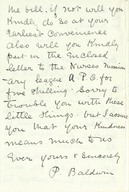 the bill. if not will you
Kindly do so at your
Earliest Convenience
also will you Kindly
post in the Enclosed
letter to the Nurses Mission
ary league a P.O. for
five shilling. Sorry to
trouble you with these
little things. but I assure
you that your Kindness
means much to us
Ever yours
P Baldwin